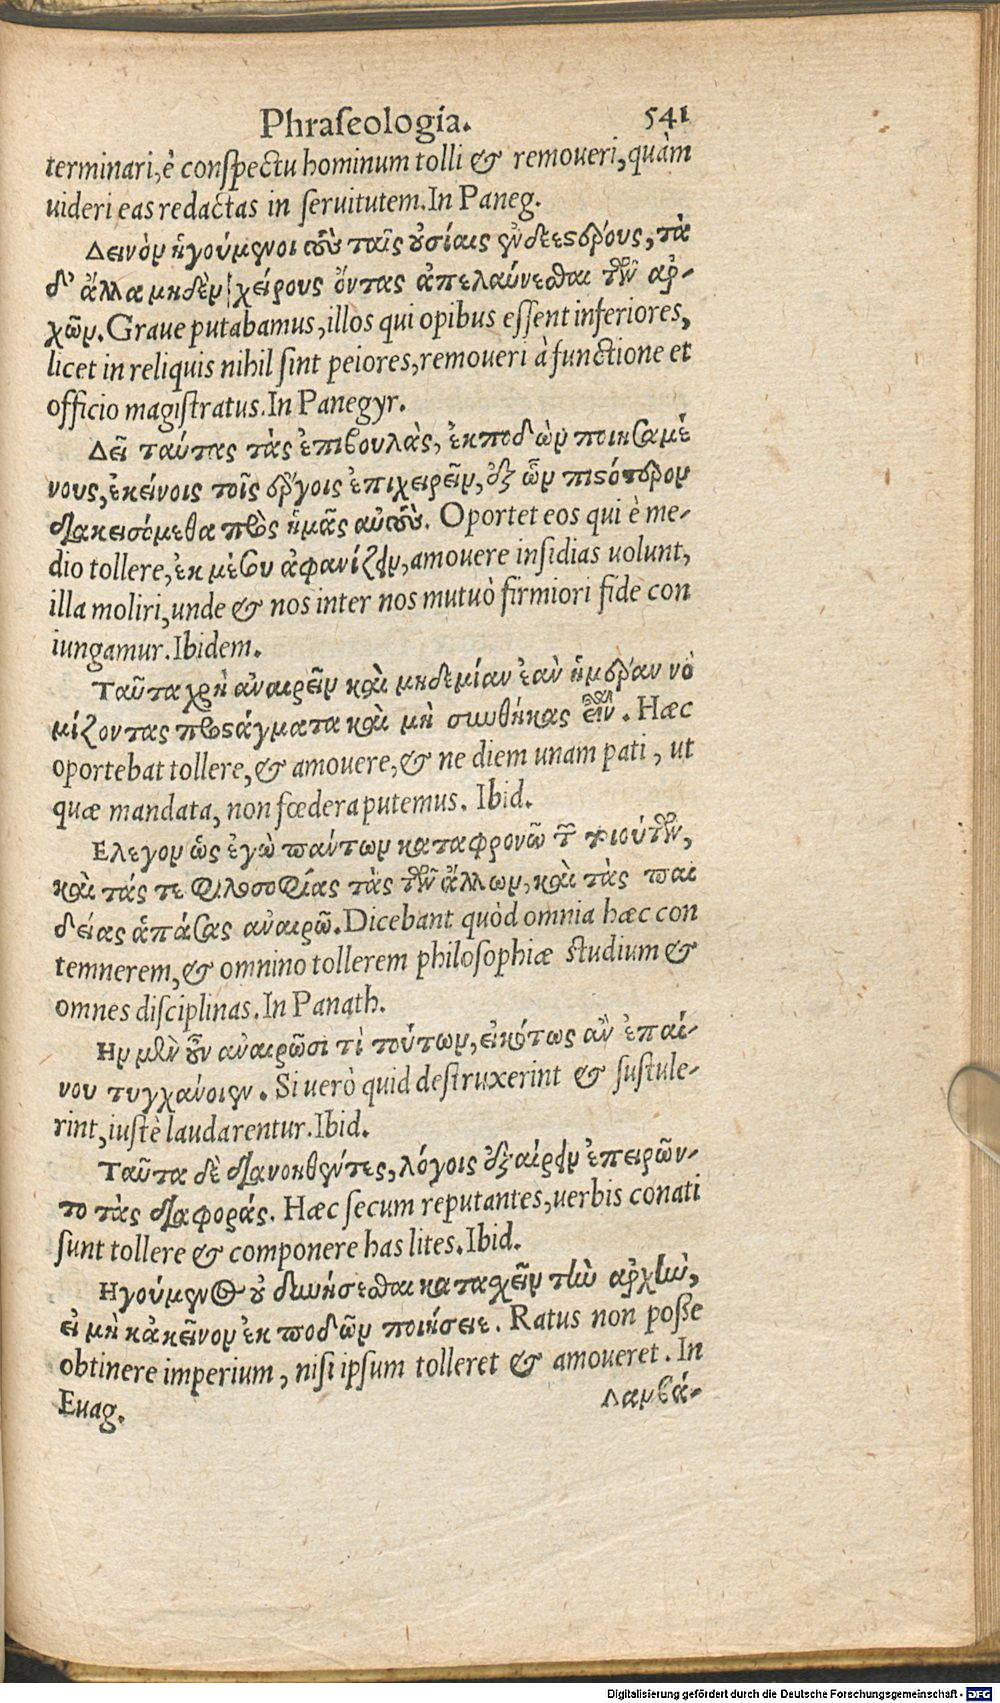 Phraſeologia. 541
terminari, è conſpectu hominum tolli & remoueri, quàm
uideri eas redactas in ſeruitutem. In Paneg.
Δεινὸν ἡγούμενοι τοὺς ταῖς οὐσίαις ἐνδεεστέρους, τὰ
δ' ἄλλα μηδὲν χείρους ὄντας ἀπελαύνεσθαι τῶν ἀρ-
χῶν. Graue putabamus, illos qui opibus eſſent inferiores,
licet in reliquis nihil ſint peiores, remoueri à functione et
officio magiſtratus. In Panegyr.
Δεῖ ταύτας τὰς ἐπιβουλὰς, ἐκποδὼν ποιησαμέ
νους, ἐκείνοις τοῖς ἔργοις ἐπιχειρεῖν, ἐξ ὧν πιστότερον
διακεισόμεθα πρὸς ἡμᾶς αὐτούς. Oportet eos qui è me-
dio tollere, ἐκ μέσου ἀφανίζειν, amouere inſidias uolunt,
illa moliri, unde & nos inter nos mutuò firmiori fide con
iungamur. Ibidem.
Ταῦτα χρὴ ἀναιρεῖν καὶ μηδεμίαν ἐὰν ἡμέραν νο
μίζοντας προστάγματα καὶ μὴ συνθήκας εἶναι. Hæc
oportebat tollere, & amouere, & ne diem unam pati, ut
quæ mandata, non fœdera putemus. Ibid.
Ελεγον ὡς ἐγὼ πάντων καταφρονῶ τῶν τοιούτων,
καὶ τάς τε φιλοσοφίας τὰς τῶν ἄλλων, καὶ τὰς παι
δείας ἁπάσας ἀναιρῶ. Dicebant quòd omnia hæc con
temnerem, & omnino tollerem philoſophiæ ſtudium &
omnes diſciplinas. In Panath.
Ην μὲν οὖν ἀναιρῶσί τι τούτων, εἰκότως ἂν ἐπαί-
νου τυγχάνοιεν. Si uerò quid deſtruxerint & ſuſtule-
rint, iuſtè laudarentur. Ibid.
Ταῦτα δὲ διανοηθέντες, λόγοις ἐξαίρειν ἐπειρῶν-
το τὰς διαφοράς. Hæc ſecum reputantes, uerbis conati
ſunt tollere & componere has lites. Ibid.
Ηγούμενος οὐ δυνήσεσθαι κατασχεῖν τὴν ἀρχὴν,
εἰ μὴ κἀκεῖνον ἐκ ποδῶν ποιήσειε. Ratus non poſſe
obtinere imperium, niſi ipſum tolleret & amoueret. In
Euag. Λαμβά-
Digitalisierung gefördert durch die Deutsche Forschungsgemeinschaft - DFG